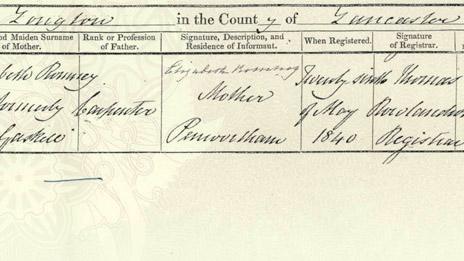 Longton in the County of Lancaster
od Maiden Surname of Mother. Rank or Profession of Father. Signature, Description, and Residence of Informant. When Registered. Signature of Registrar.
beth Romney Elizabeth Romney Twenty sixth Thomas
formerly Carpenter Mother of May Rowlandson
Gaskell Penwortham 1840 Registrar